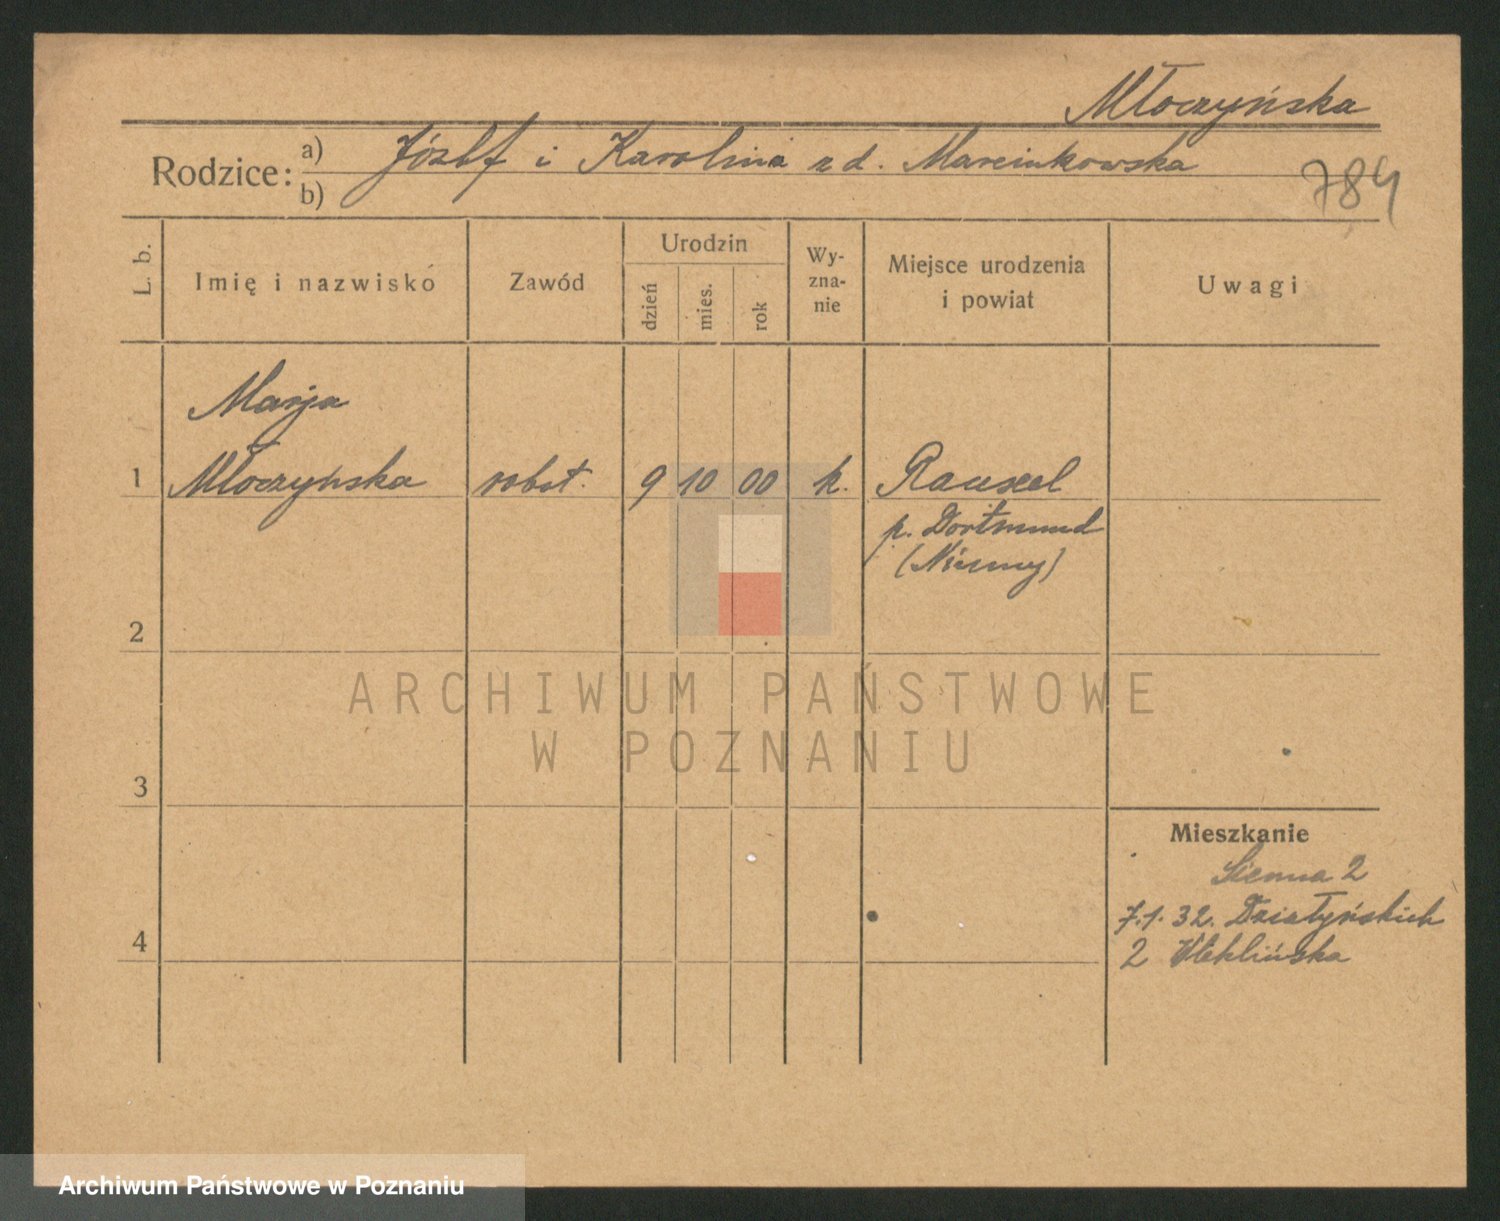 Młoczyńska
Rodzice: a) Józef i Karolina z d. Marcinkowska
b)
784
L. b.
Imię i nazwisko
Zawód
Urodzin
dzień
mies.
rok
Wy-
zna-
nie
Miejsce urodzenia
i powiat
Uwagi
Marja
1 Młoczyńska robot. 9 10 00 k. Rauxel
p. Dortmund
(Niemcy)
2
3
4
ARCHIWUM PAŃSTWOWE
W POZNANIU
Mieszkanie
Sienna 2
7.1.32. Działyńskich
2
Archiwum Państwowe w Poznaniu